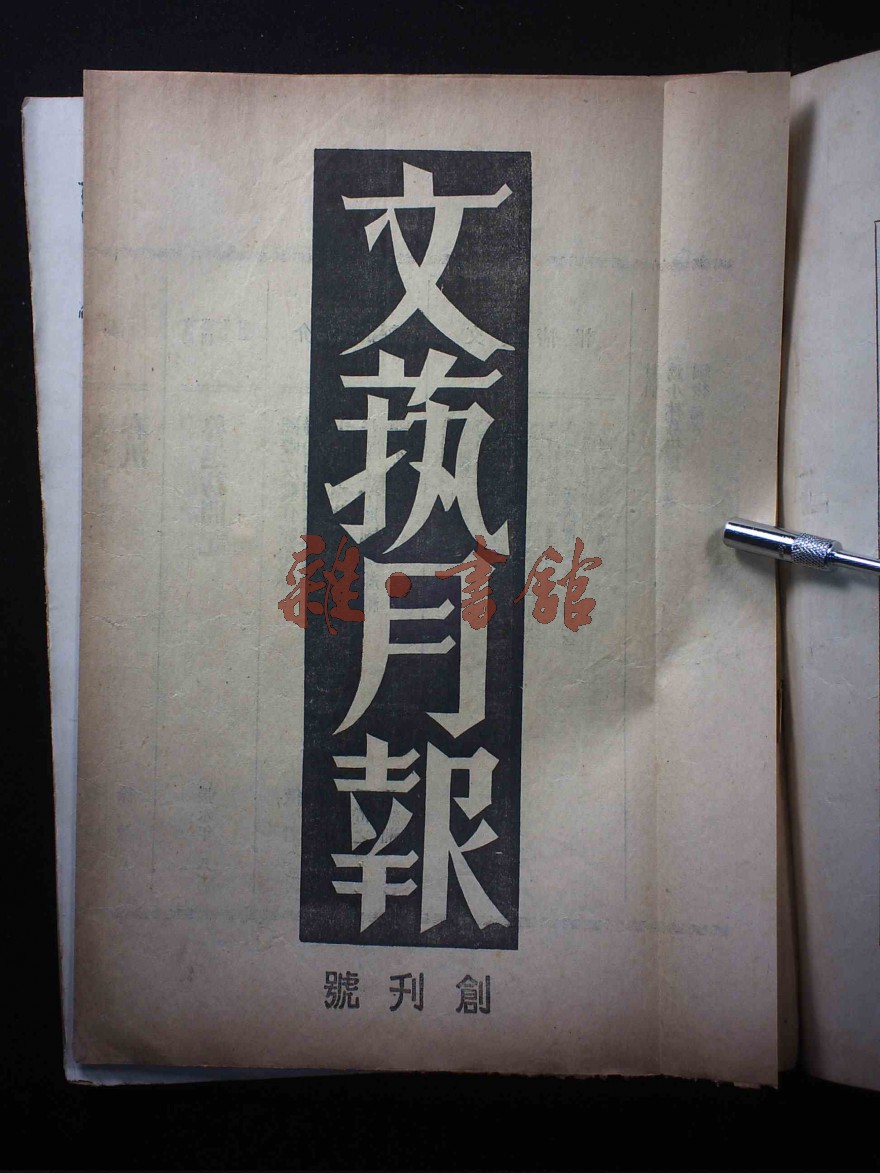 文执月報
創刊號
雜·書館